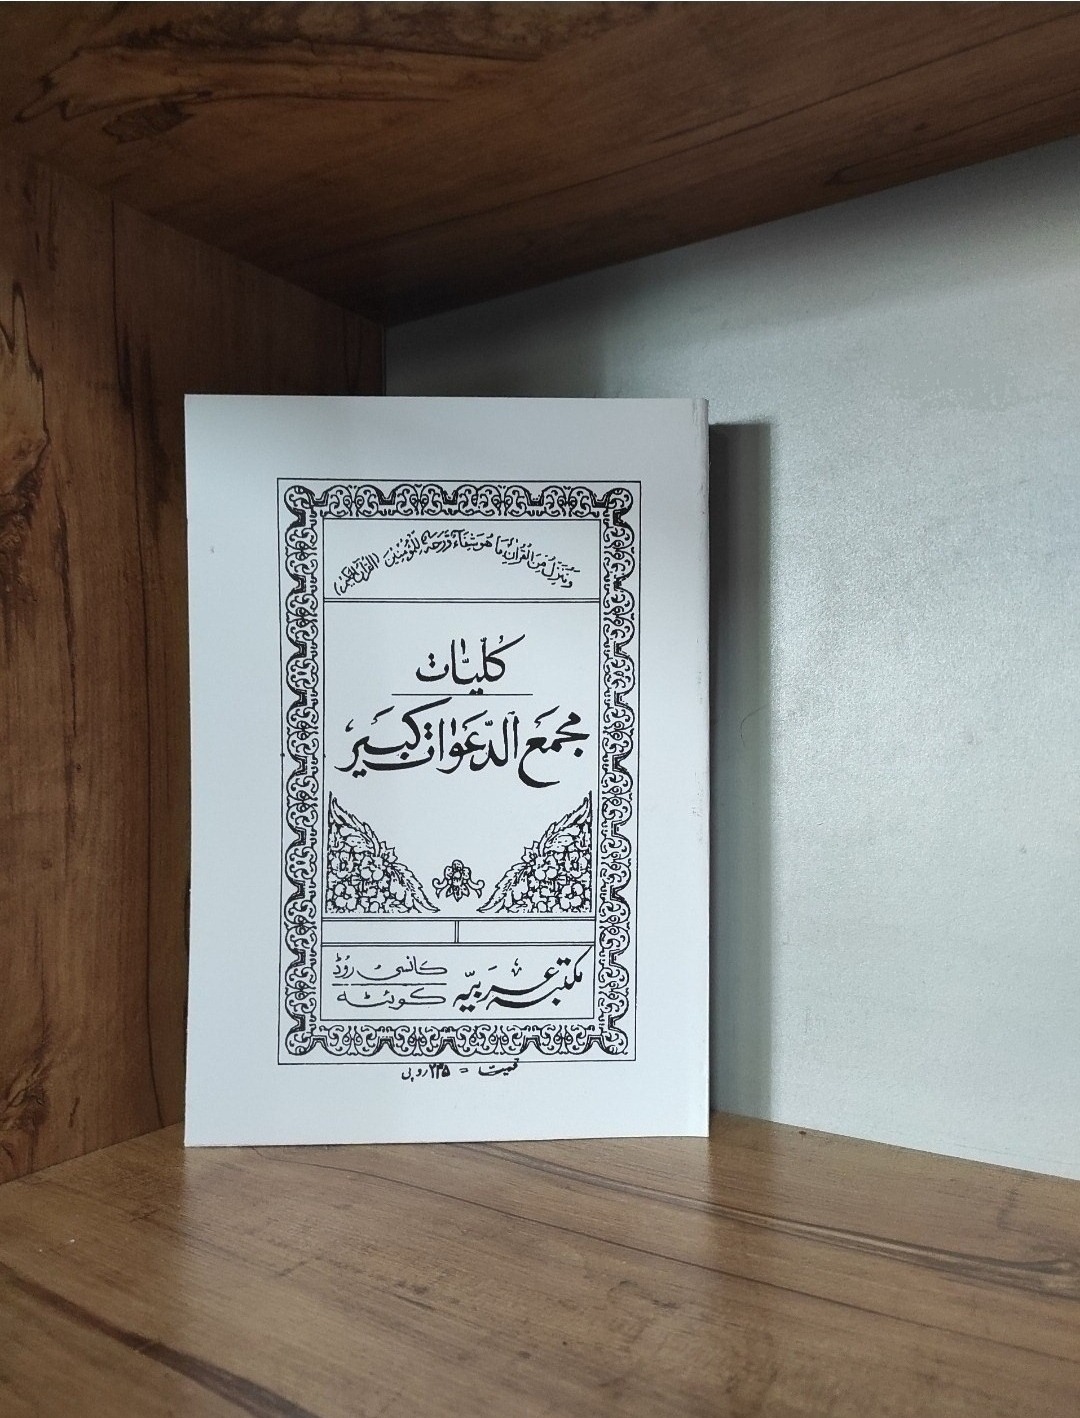 وَنُنَزِّلُ مِنَ الْقُرْاٰنِ مَا هُوَ شِفَآءٌ وَّرَحْمَةٌ لِّلْمُؤْمِنِيْنَ (القرآن الحكيم)
كُلّيّات
مجمَع الدّعَوات كبَير
مكتبہ عَرَبیّہ
کانسی رُوڈ
کوئٹہ
قیمت = ۲۳۵ روپی